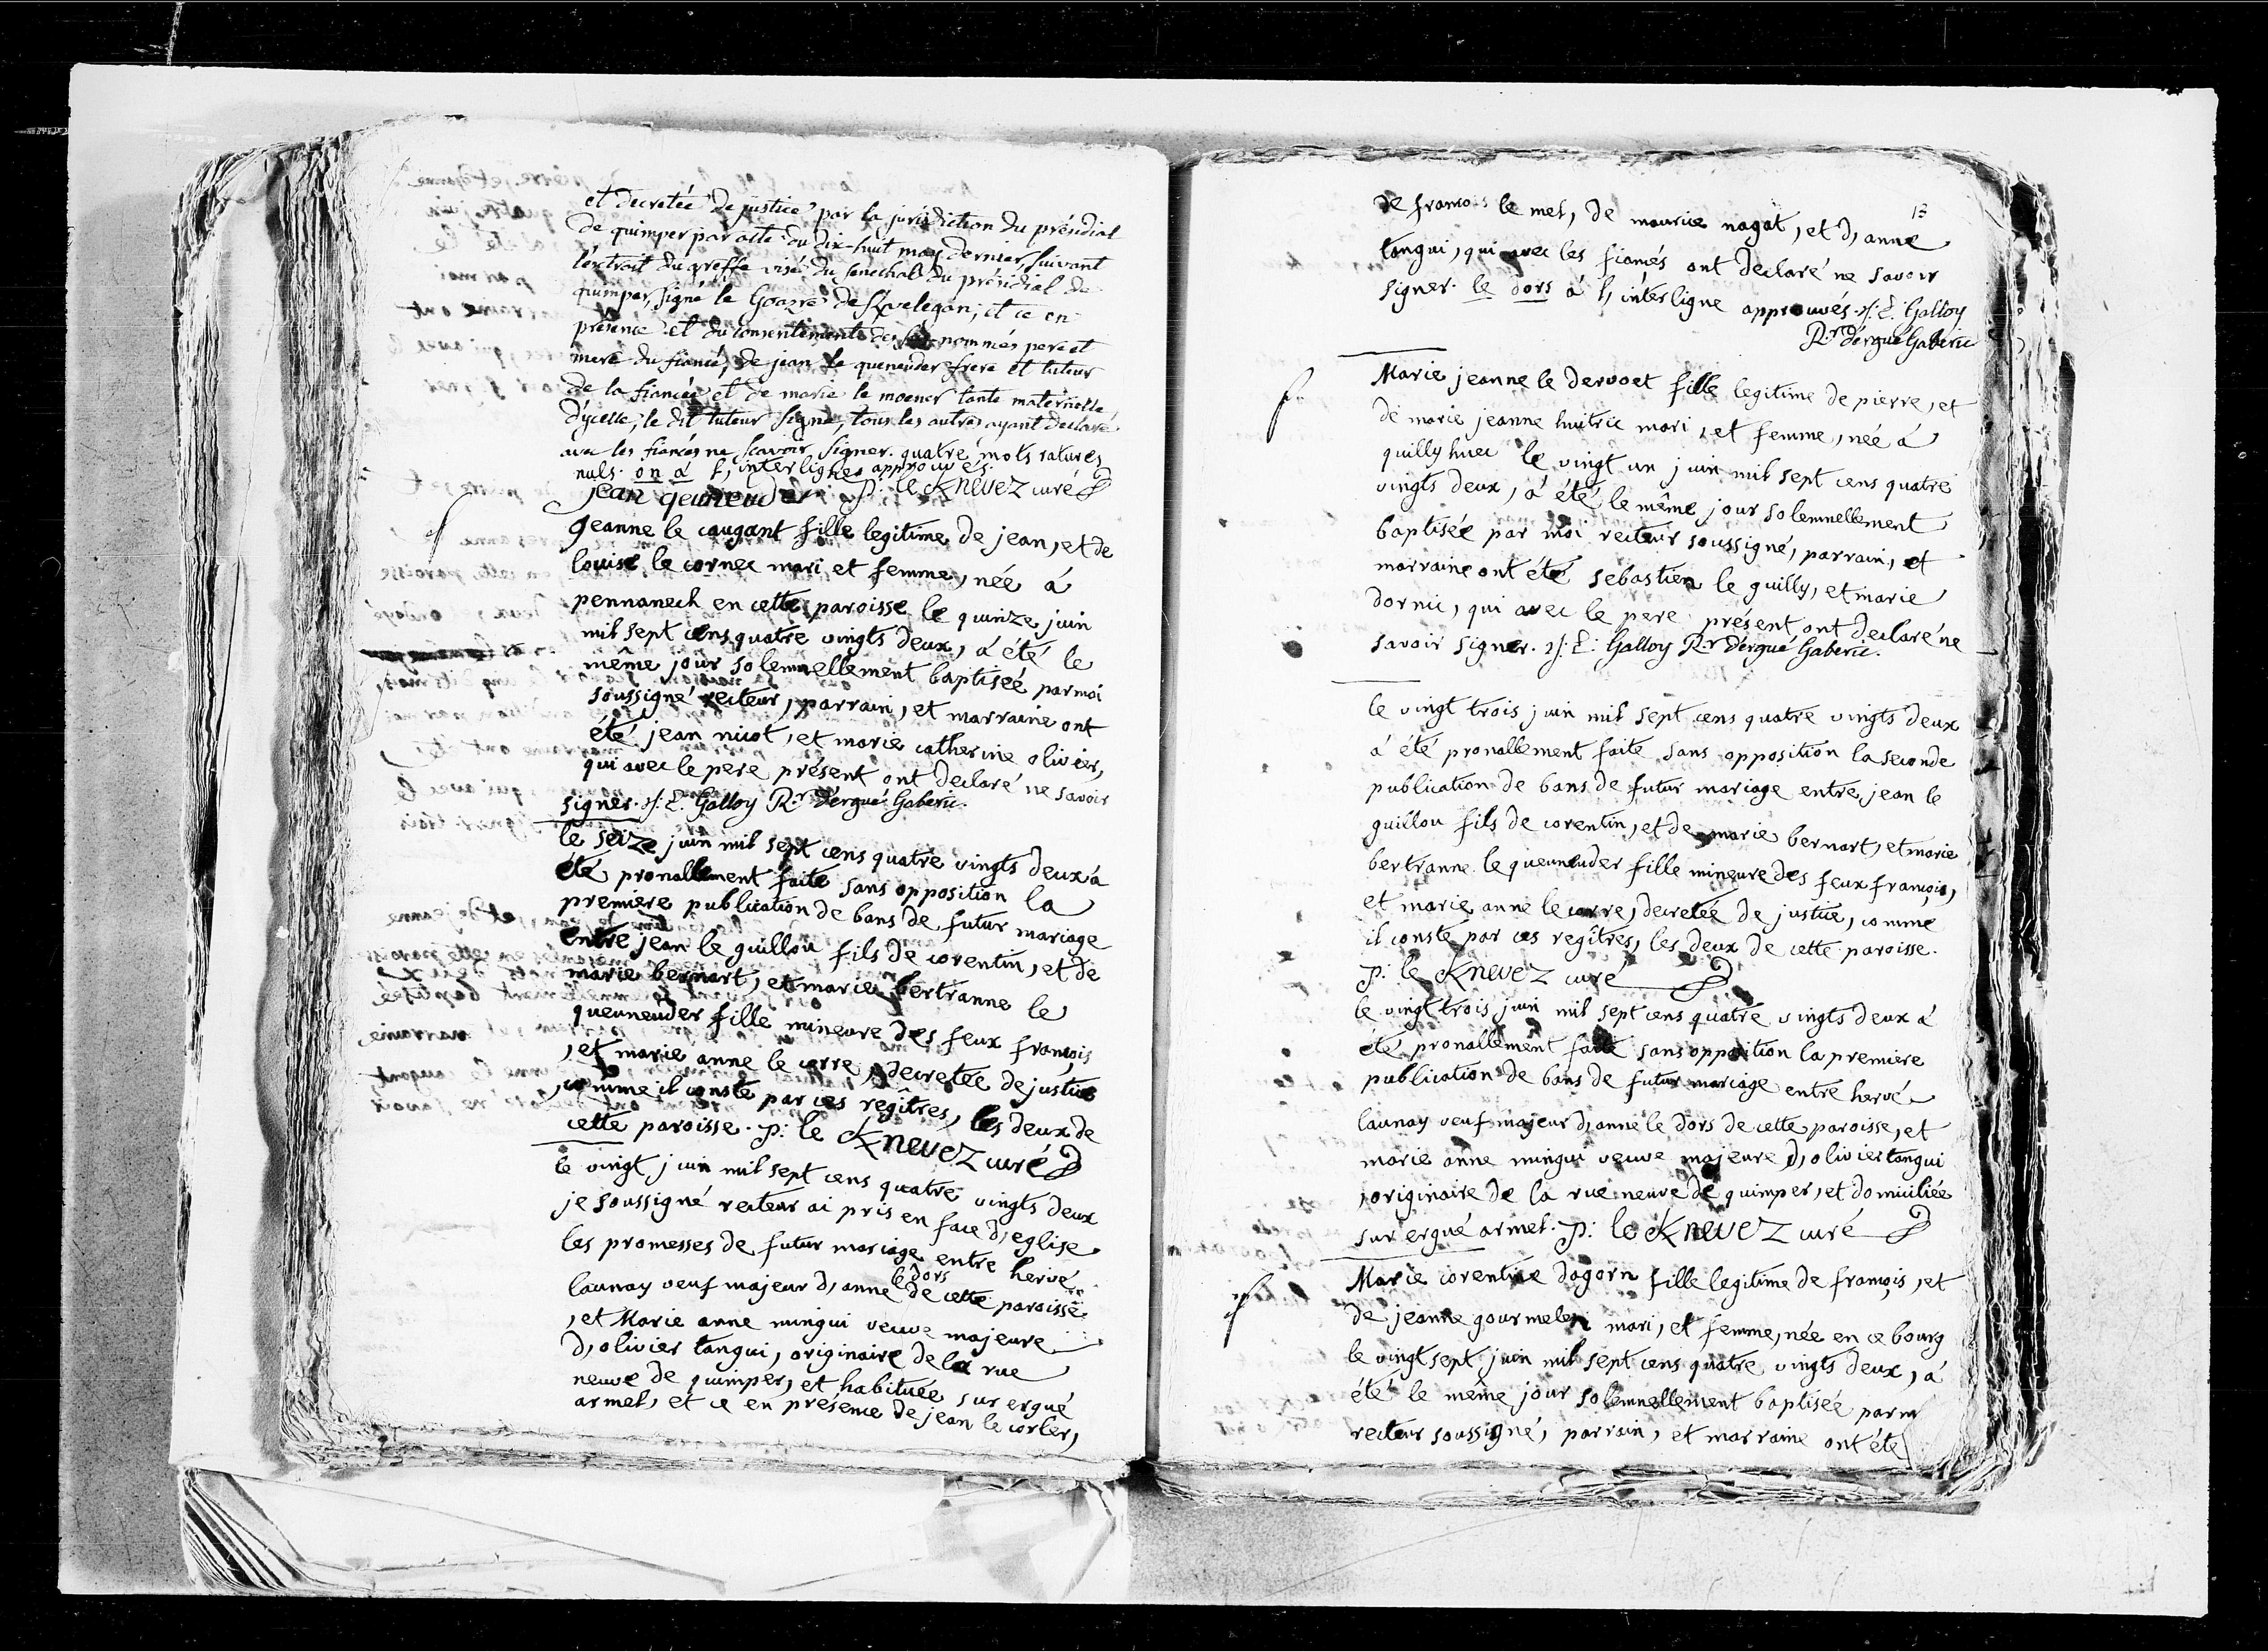 et decretée de justice par la jurisdiction du présidial
de quimper par acte du dix-huit may dernier suivant
l'extrait du greffe visé du senechal du présidial de
quimper, signé le Goazre de Kvelegan; et ce en
présence et du consentement des nommés pere et
mere du fiancé, de jean le queneuder frere et tuteur
de la fiancée et de marie le moener tante maternelle
d'ycelle, le dit tuteur signe, tous les autres ayant declaré
avec les fiancés ne scavoir signer. quatre mots raturés
nuls. on a l, interligne approuvés.
jean qeuneuder p: le Knevez curé
Jeanne le caugant fille legitime de jean, et de
louise le cornec mari et femme, née á
pennanech en cette paroisse le quinze juin
mil sept cens quatre vingts deux, á été le
même jour solemnellement baptisée par moi
soussigné recteur, parrain, et marraine ont
été jean nicot, et marie catherine olivier,
qui avec le pere présent ont declaré ne savoir
signer. Galloy Rr d'ergué Gaberic.
le seize juin mil sept cens quatre vingts deux á
été pronallement faite sans opposition la
premiere publication de bans de futur mariage
entre jean le guillou fils de corentin, et de
marie bernart, et marie bertranne le
queuneuder fille mineure des feux francois
, et marie anne le corre, decretée de justice
, comme il conste par ces regîtres, les deux de
cette paroisse. p: le Knevez curé
le vingt juin mil sept cens quatre vingts deux
je soussigné recteur ai pris en face d, eglise
les promesses de futur mariage entre hervé
le dors
launay veuf majeur d, anne de cette paroisse
, et Marie anne mingui veuve majeure
d, olivier tangui, originaire de la rue
neuve de quimper, et habituée sur ergué
armel, et ce en présence de jean le corler,
13
de francois le mel, de maurice nagat, et d, anne
tangui, qui avec les fiancés ont declaré ne savoir
signer. le dors á l, interligne approuvés. Galloy
Rr d'ergué Gaberic
Marie jeanne le dervoet fille legitime de pierre, et
de marie jeanne huitric mari, et femme, née á
quillyhuec le vingt un juin mil sept cens quatre
vingts deux, á été le même jour solemnellement
baptisée par moi recteur soussigné, parrain, et
marraine ont été sebastien le guilly, et marie
dornic, qui avec le pere présent ont declaré ne
savoir signer. Galloy Rr d'ergué Gaberic.
le vingt trois juin mil sept cens quatre vingts deux
á été pronallement faite sans opposition la seconde
publication de bans de futur mariage entre jean le
guillou fils de corentin, et de marie bernart, et marie
bertranne le queuneuder fille mineure des feux françois,
et marie anne le corre, decretée de justice, comme
il conste par ces regîtres, les deux de cette paroisse.
p: le Knevez curé
le vingt trois juin mil sept cens quatre vingts deux á
été pronallement faite sans opposition la premiere
publication de bans de futur mariage entre hervé
launay veuf majeur d, anne le dors de cette paroisse, et
marie anne mingui veuve majeure d, olivier tangui
, originaire de la rue neuve de quimper, et domiciliée
sur ergué armel. p: le Knevez curé
Marie corentine dagorn fille legitime de françois, et
de jeanne gourmelen mari, et femme, née en ce bourg
le vingt sept juin mil sept cens quatre vingts deux, á
été le même jour solemnellement baptisée par m
recteur soussigné, parrain, et marraine ont été